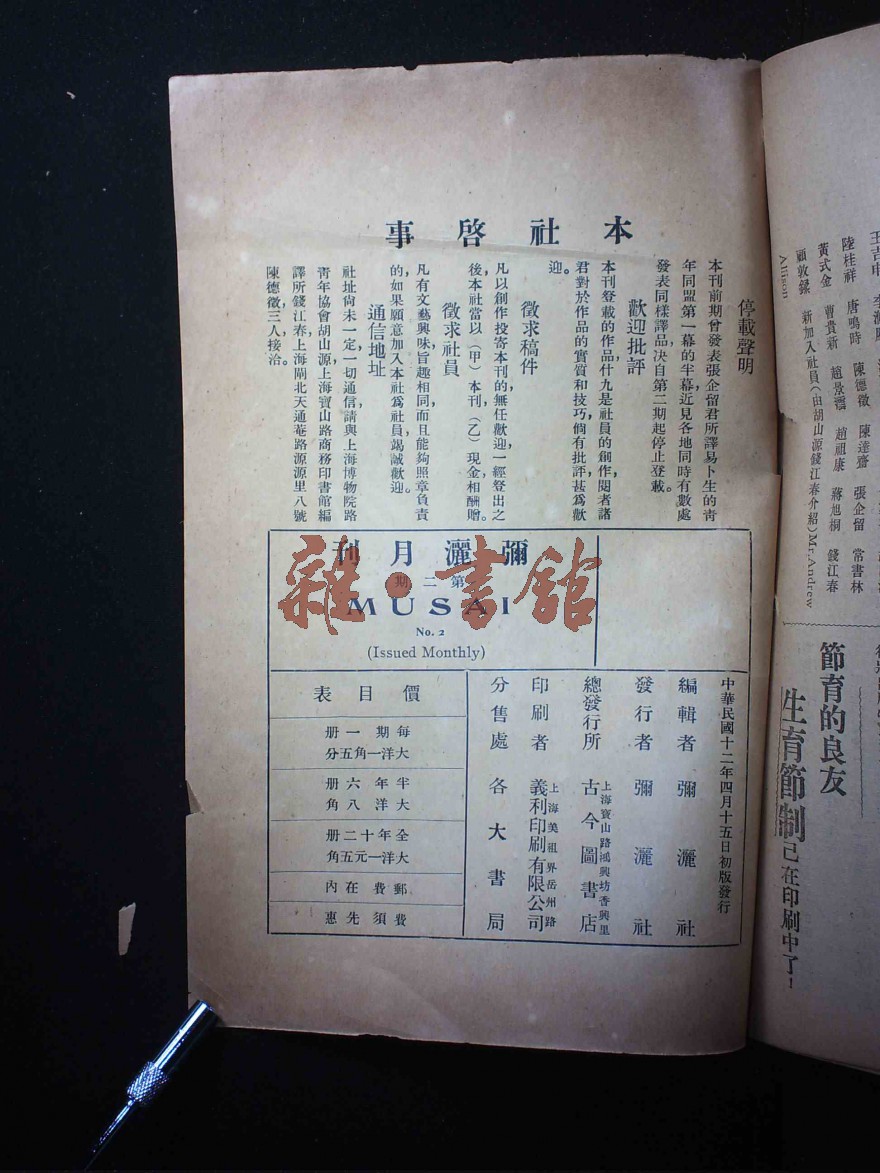 本社啓事
停載聲明
本刊前期曾發表張企留君所譯易卜生的靑
年同盟第一幕的半幕,近見各地同時有數處
發表同樣譯品,决自第二期起停止登載。
歡迎批評
本刊登載的作品什九是社員的創作,閱者諸
君對於作品的實質和技巧,倘有批評,甚爲歡
迎。
徵求稿件
凡以創作投寄本刊的無任歡迎,一經登出之
後,本社當以(甲)本刊,(乙)現金相酬贈。
徵求社員
凡有文藝興味旨趣相同,而且能夠照章負責
的,如果願意加入本社爲社員,竭誠歡迎。
通信地址
社址尙未一定,一切通信,請與上海博物院路
靑年協會胡山源,上海寶山路商務印書館編
譯所錢江春,上海閘北天通菴路源源里八號
陳德徵三人接洽。
彌灑月刊
第二期
MUSAI
No. 2
(Issued Monthly)
中華民國十二年四月十五日初版發行
編輯者 彌灑社
發行者 彌灑社
總發行所 上海寶山路鴻興坊香興里 古今圖書店
印刷者 上海美租界岳州路 義利印刷有限公司
分售處 各大書局
價目表
每期一册
大洋一角五分
半年六册
大洋八角
全年十二册
大洋一元五角
郵費在內
費須先惠
陸桂祥 唐鳴時 陳德徵 陳達齋 張企留 常書林
黃式金 曹貴新 趙景澐 趙祖康 蔣旭桐 錢江春
顧敦鍒 新加入社員(由胡山源錢江春介紹)Mr. Andrew
Allison
節育的良友
生育節制已在印刷中了!
雜·書館